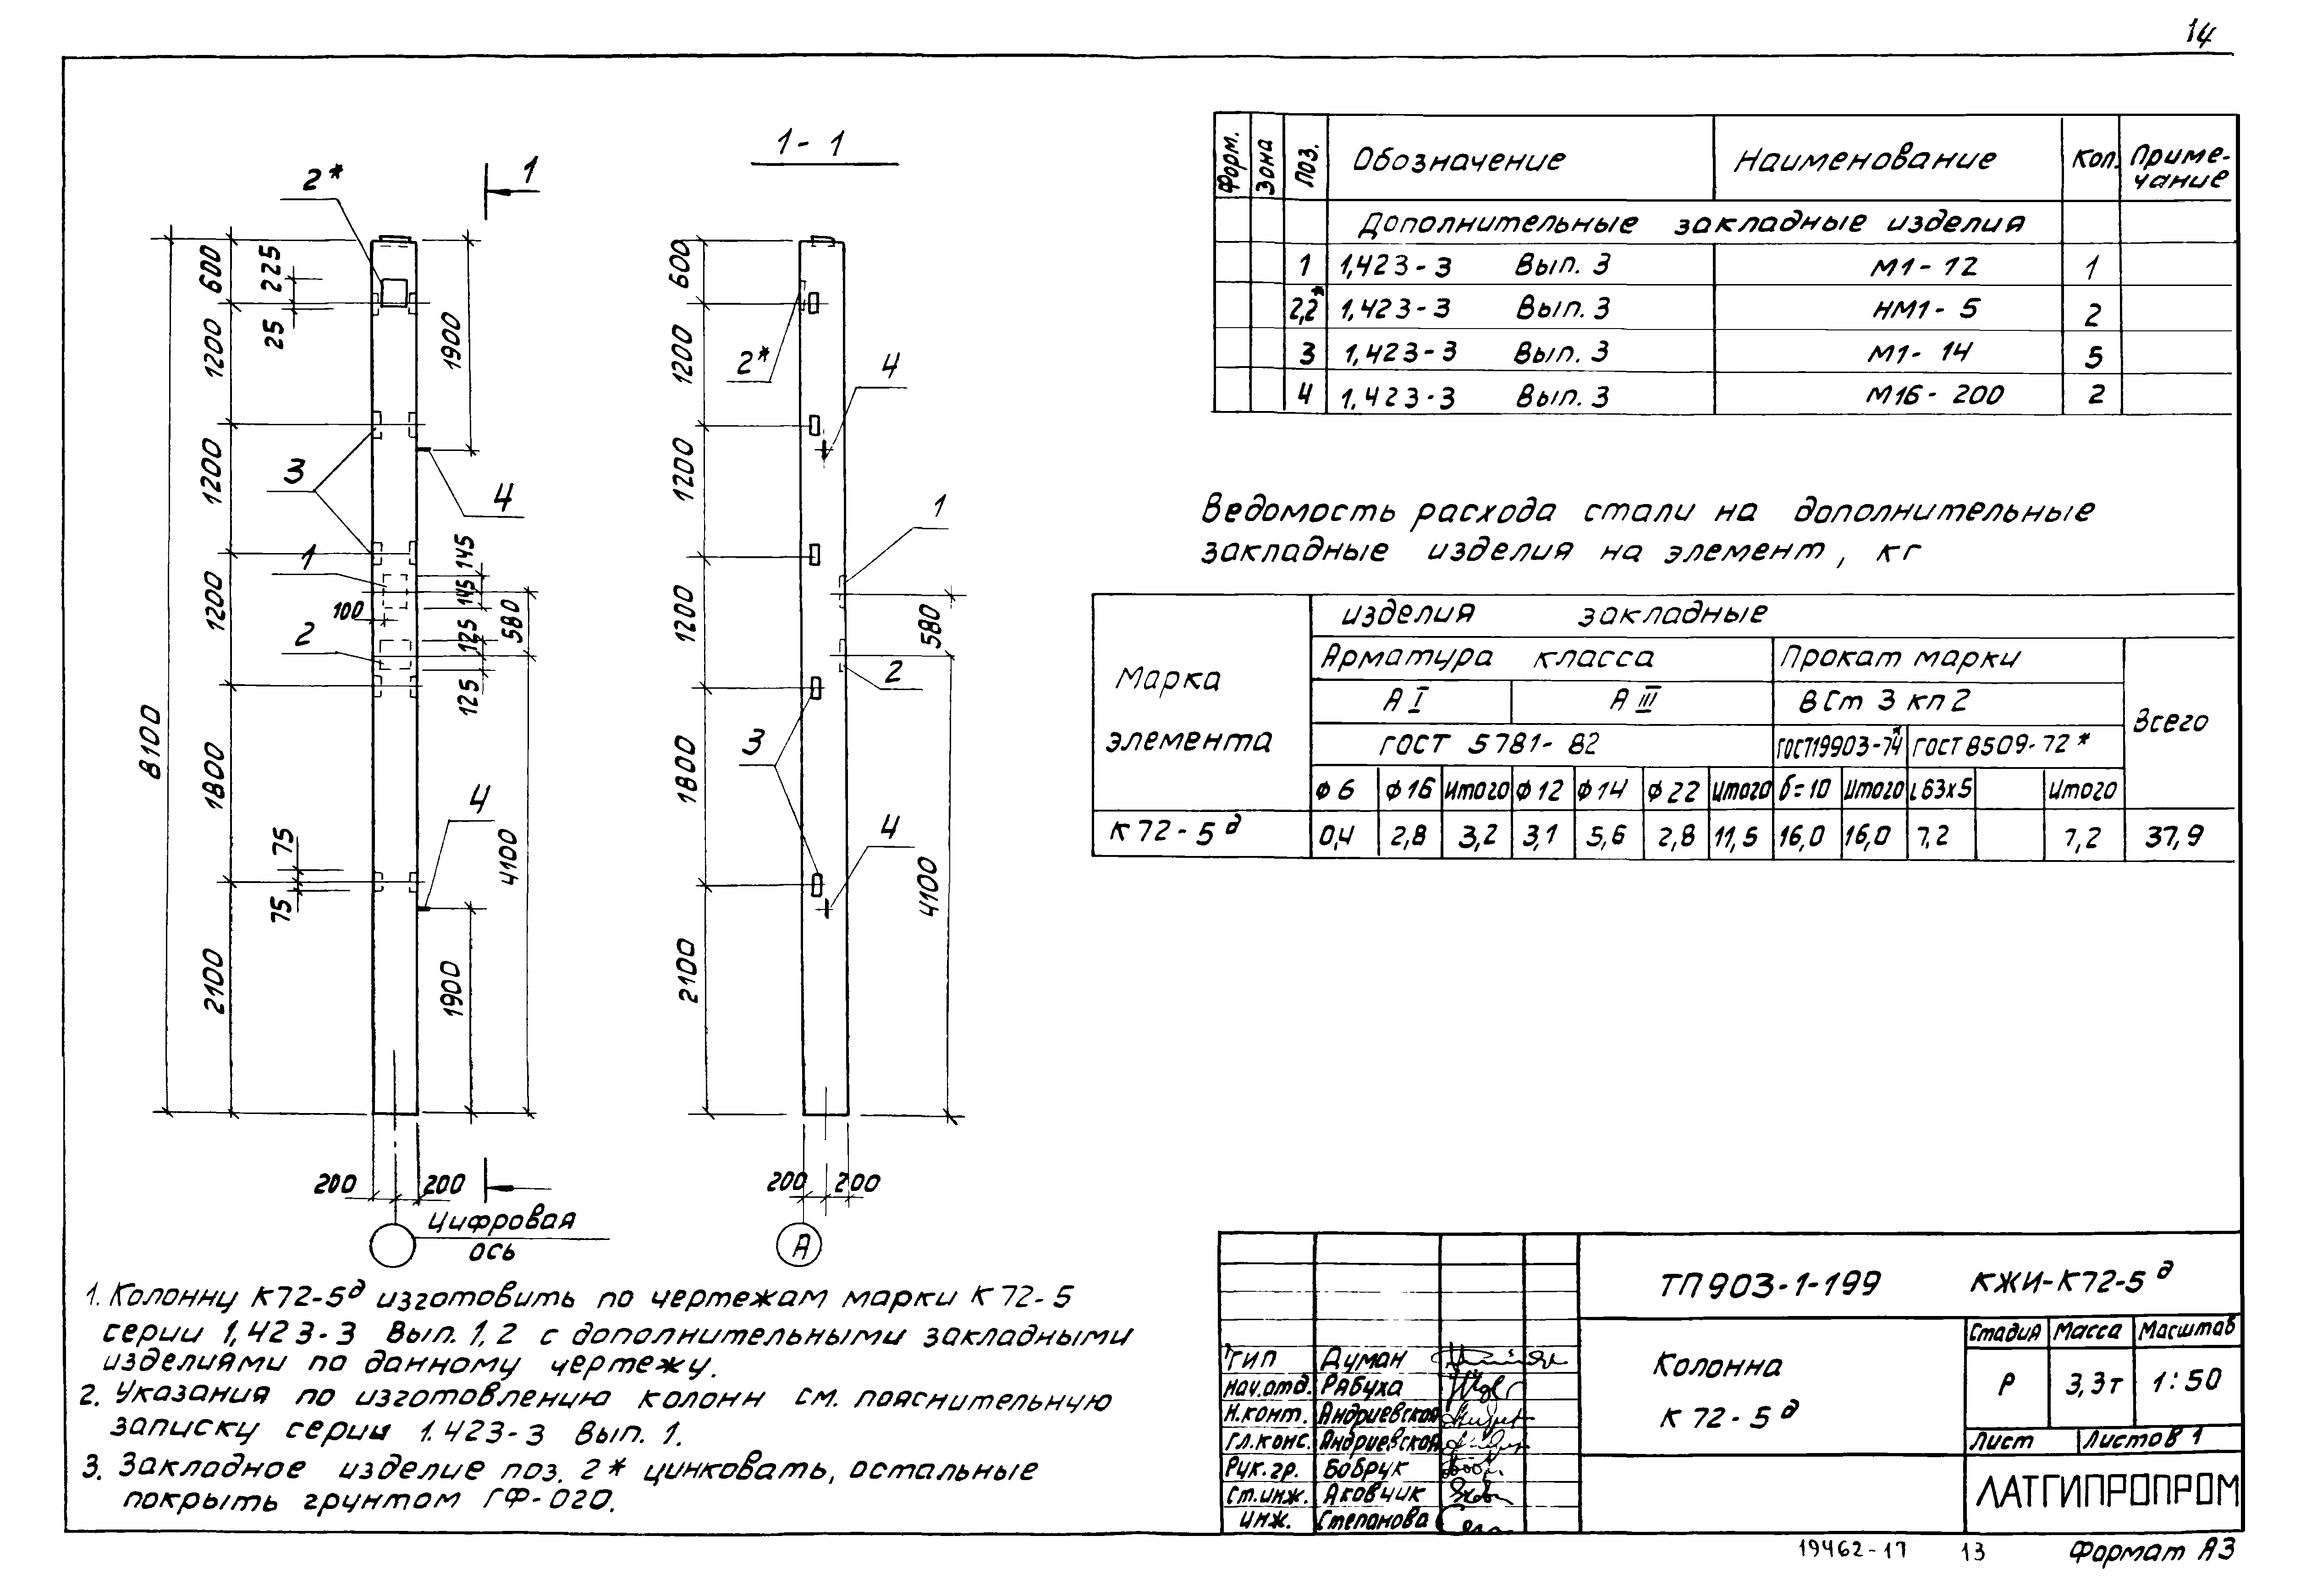 14
1-1
2*
1
600
225
25
1200
1900
1200
3
4
1
145
145
100
580
1200
2
125
125
8100
1800
4
75
75
4100
2100
1900
200
200
Цифровая
ось
600
1200
2*
4
1200
1
1200
580
2
3
1800
4
4100
2100
200
200
А
Форм.
Зона
Поз.
Обозначение
Наименование
Кол.
Приме-
чание
Дополнительные закладные изделия
1 1,423-3 Вып. 3 М1-12 1
2,2* 1,423-3 Вып. 3 НМ1-5 2
3 1,423-3 Вып. 3 М1-14 5
4 1,423-3 Вып. 3 М16-200 2
Ведомость расхода стали на дополнительные
закладные изделия на элемент, кг
Марка
элемента
изделия закладные
Арматура класса
Прокат марки
Всего
А I
А III
ВСт 3 кп2
ГОСТ 5781-82
ГОСТ19903-74*
ГОСТ 8509-72*
ϕ6 ϕ16 Итого ϕ12 ϕ14 ϕ22 Итого δ=10 Итого L63х5 Итого
К72-5д 0,4 2,8 3,2 3,1 5,6 2,8 11,5 16,0 16,0 7,2 7,2 37,9
1. Колонну К72-5д изготовить по чертежам марки К72-5
серии 1,423-3 Вып. 1,2 с дополнительными закладными
изделиями по данному чертежу.
2. Указания по изготовлению колонн см. пояснительную
записку серии 1.423-3 Вып. 1.
3. Закладное изделие поз. 2* цинковать, остальные
покрыть грунтом ГФ-020.
ТП903-1-199 КЖИ-К72-5д
Колонна
К 72-5д
Стадия Масса Масштаб
Р 3,3т 1:50
Лист Листов 1
ЛАТГИПРОПРОМ
ГИП Думан
Нач.отд. Рябуха
Н.конт. Андриевская
Гл.конс. Андриевская
Рук.гр. Бобрук
Ст.инж. Яковчик
Инж. Степанова
19462-17 13 Формат А3